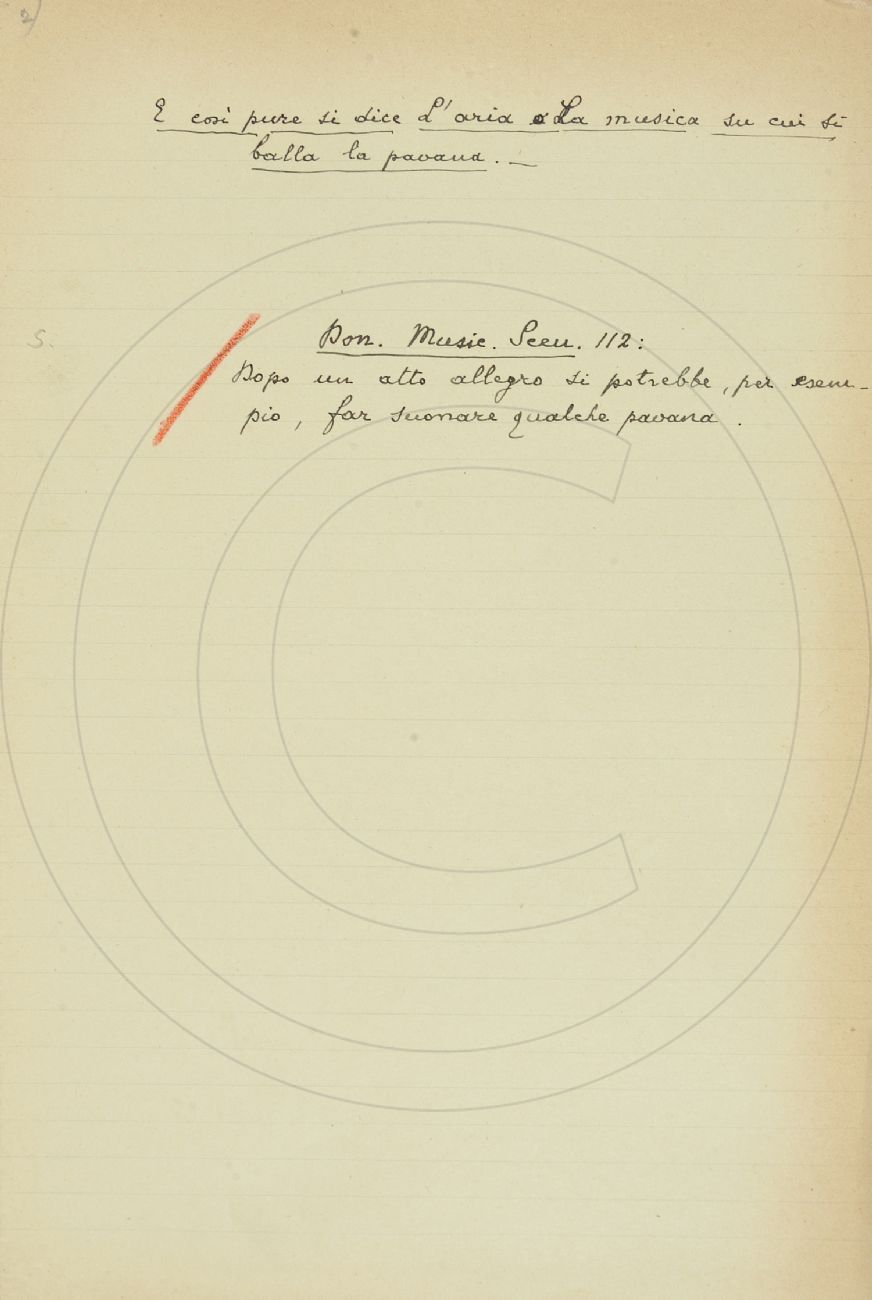 2)
E così pure si dice L'aria o La musica su cui si
balla la pavana. —
S.
Don. Music. Scen. 112:
Dopo un atto allegro si potrebbe, per esem-
pio, far suonare qualche pavana.